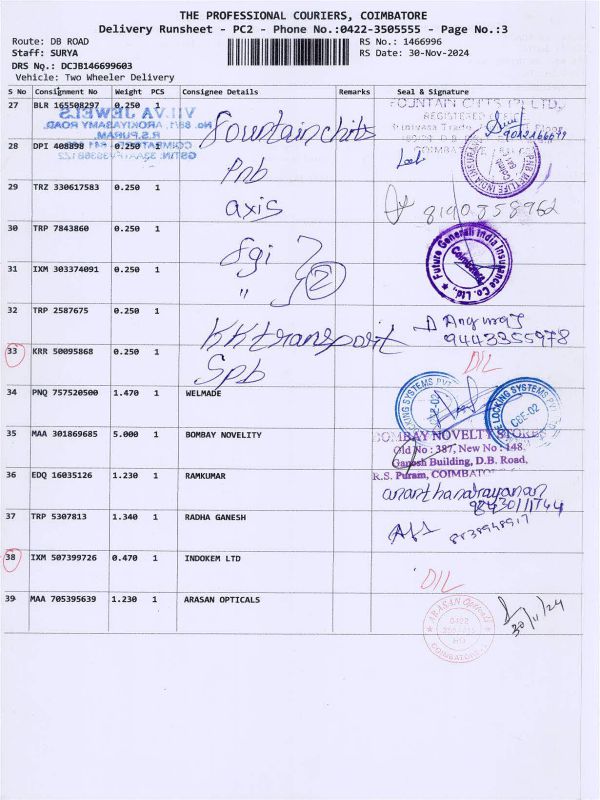 THE PROFESSIONAL COURIERS, COIMBATORE
Delivery Runsheet - PC2 - Phone No.:0422-3505555 - Page No.:3
Route: DB ROAD RS No.: 1466996
Staff: SURYA RS Date: 30-Nov-2024
DRS No.: DCJB146699603
Vehicle: Two Wheeler Delivery
S No Consignment No Weight PCS Consignee Details Remarks Seal & Signature
27 BLR 165508297 0.250 1 Fountain chits FOUNTAIN CHITS (P) LTD.,
VILVA JEWELS
No. 88/1, AROKIYASAMY ROAD,
R.S.PURAM,
28 DPI 408898 0.250 1 Pnb
PNB METLIFE INDIA INSURANCE
29 TRZ 330617583 0.250 1 axis 8190858962
30 TRP 7843860 0.250 1 fgi
Future Generali India Insurance Co. Ltd.,
Coimbatore
31 IXM 303374091 0.250 1 " 2
32 TRP 2587675 0.250 1 KK transport D Anguraj
9443355978
33 KRR 50095868 0.250 1 Spb D/L
34 PNQ 757520500 1.470 1 WELMADE
LOCKING SYSTEMS PVT
CBE-02
LOCKING SYSTEMS PVT
CBE-02
35 MAA 301869685 5.000 1 BOMBAY NOVELITY BOMBAY NOVELTY STORES
Old No : 387, New No : 148,
Ganesh Building, D.B. Road,
R.S. Puram, COIMBATORE
36 EDQ 16035126 1.230 1 RAMKUMAR ananthanarayanan
37 TRP 5307813 1.340 1 RADHA GANESH 8838948917
38 IXM 507399726 0.470 1 INDOKEM LTD D/L
39 MAA 705395639 1.230 1 ARASAN OPTICALS
ARASAN Opticals
0422
COIMBATORE
30/11/24